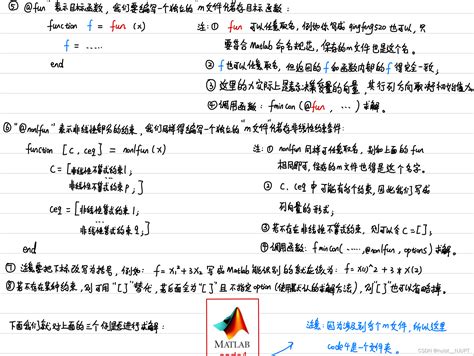 ⑤ "@fun" 表示目标函数，我们要编写一个独立的m文件储存目标函数：
function f = fun (x)
注：① fun 可以任意取名，例如你写成 qingfeng520 也可，只
f = ······
要符合Matlab 命名规范，保存的m文件也是这个名。
end
② f也可以任意取，但返回的f和函数内部的f得完全一致；
③ 这里的x实际上是决策变量的向量，其行列方向取初始值x0
④ 调用函数：fmincon(@fun, ···) 求解。
⑥ "@nonlfun" 表示非线性部分的约束，我们同样得编写一个独立的"m文件"储存非线性约束条件：
function [C, ceq] = nonlfun(x)
注：① nonlfun 同样可任意取名，别和上面的fun
C = [非线性不等式约束1;
相同即可，保存的m文件也得是这个名字。
非线性不等式约束P;]
② C, ceq 中可能有多个约束，因此我们写成
ceq = [非线性等式约束1;
列向量的形式；
非线性等式约束q;]
③ 若不存在非线性不等式约束，则可以令C=[];
end
④ 调用函数：fmincon(····,@nonlfun, options) 求解。
⑦ 注意要把下标改写为括号，例如：f=x₁²+3x₂ 写成Matlab能识别的就应该为：f=x(1)^2+3*x(2)
⑧ 若不存在某种约束，则可用"[]"替代，若后面全为"[]"且不指定option (使用默认的求解方法)，则"[]"也可以省略掉。
下面我们就对上面的三个例题进行求解：
MATLAB
注意：因为涉及到多个m文件，所以这里
code4是一个文件夹。